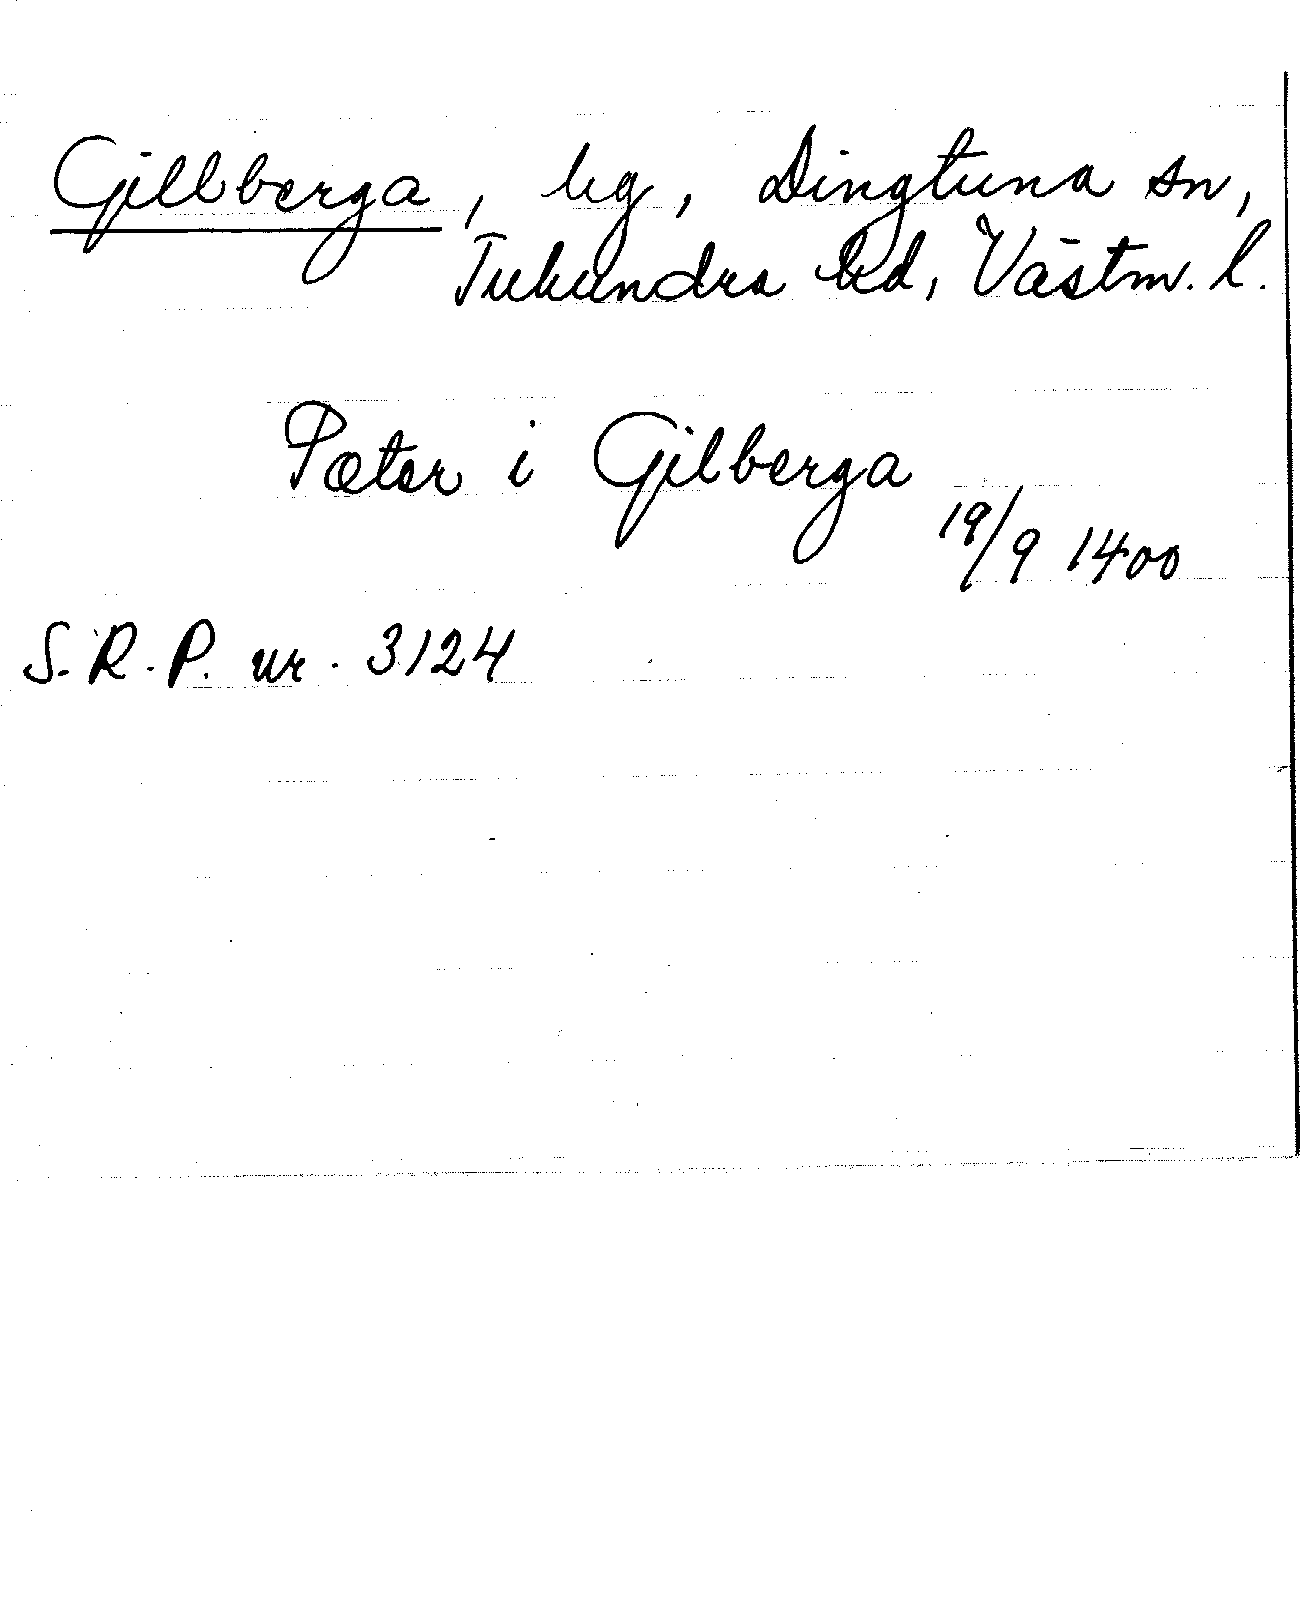 Gillberga, by, Dingtuna sn,
Tuhundra hd, Västm. l.
Pæter i Gilberga
19/9 1400
S.R.P. nr. 3124